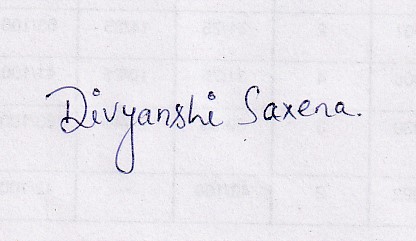 Divyanshi Saxena.